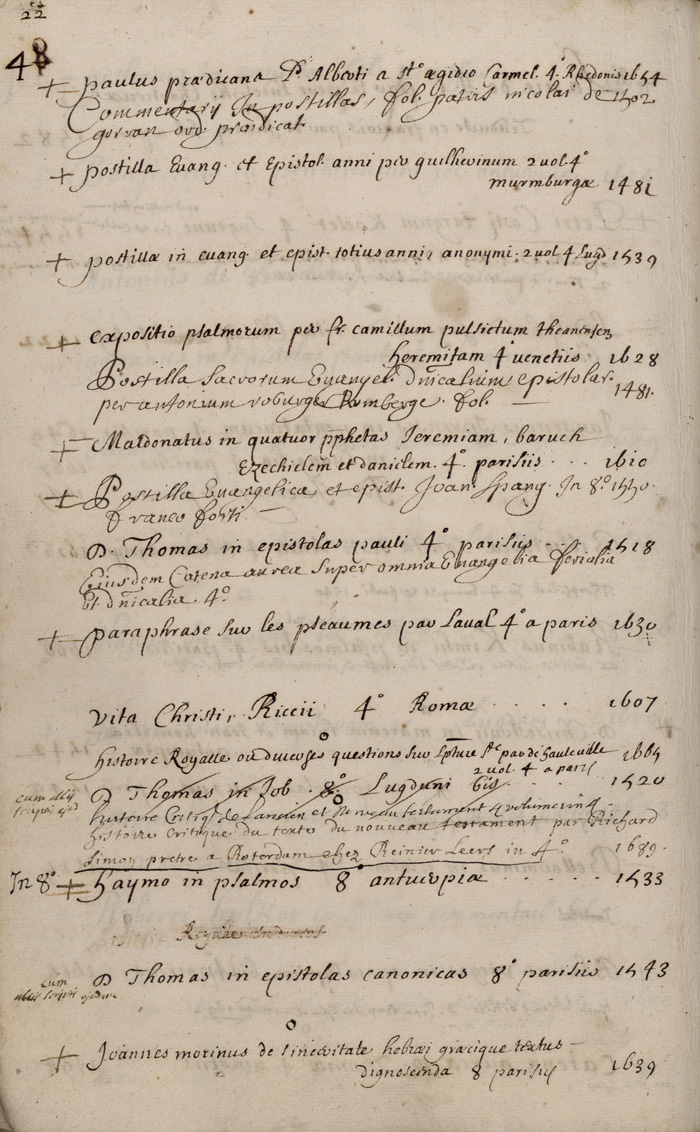 22
48
+ paulus prædicans P. Alberti a Sto ægidio Carmel. 4. Rhedonis 1654
Commentarij In postillas, fol. patris nicolai de 1502
gorran ord prædicat.
+ postilla Evang. et Epistol. anni per guilhevinum 2 vol 4°
murmburgæ 1481
+ postillæ in evang. et epist. totius anni, anonymi. 2 vol 4 Lugd 1539
+ expositio psalmorum per fr. camillum pulsictum theanensem
heremitam 4° venetiis 1628
Postilla Sacrorum Evangel. dnicalium epistolar.
per antonium roburger fol. 1481.
+ Maldonatus in quatuor pphetas Jeremiam, baruch
Ezechielem et danielem. 4°. parisiis . . . 1610
+ Postilla Evangelica, et epist. Joan. Spang. In 8.° 1550.
franco forti
D. Thomas in epistolas pauli 4° parisiis . . . 1518
Eiusdem Catena aurea super omnia Evangelia ferialia
Et dnicalia. 4.°
+ paraphrase sur les pseaumes par Laval 4° a paris 1630
vita Christi, Riccii 4° Romæ . . . . . 1607
histoire Royalle ou diverses questions sur Lpture Ste par de hauteville 1665
2 vol. 4 a paris
cum aliis
D Thomas in Job . 8.° Lugduni bis 1520
histoire Critiq. de Lancien et nouveau testament 4 volume in 4
histoire Critique du texte du nouveau testament par Richard
Simon pretre a Roterdam chez Reinier Leers in 4° 1689.
In 8° + haymo in psalmos 8° antuerpiæ . . . . . 1533
Royalle
cum
D Thomas in epistolas canonicas 8° parisiis 1543
+ Joannes morinus de sinceritate hebræi græcique textus
dignoscenda 8 parisiis 1639